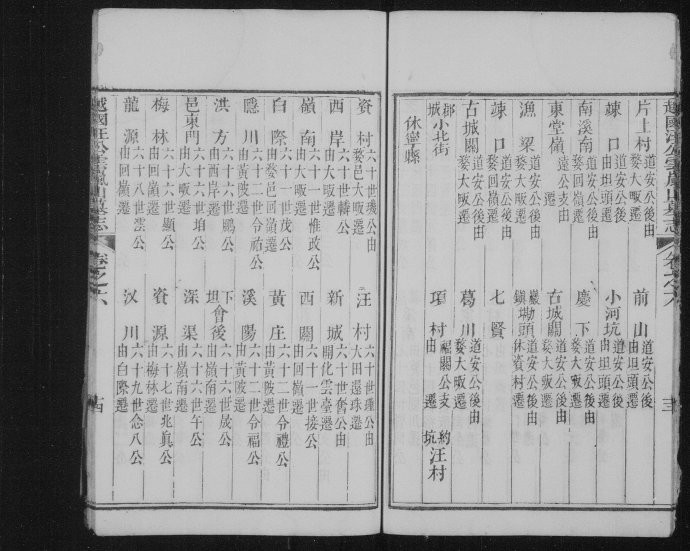 越國汪公雲嵐山墓志 卷之六 三
片上村 道安公後由婺大畈遷 前山 道安公後由坦頭遷
竦口 道安公後由坦頭遷 小河坑 道安公後由坦頭遷
南溪南 道安公後由婺大畈遷 慶下 道安公後由婺大畈遷
東堂嶺 遠公支由婺回嶺遷 古城關 道安公後由婺大畈遷
漁梁 道安公後由婺大畈遷 鎮 巖坳頭 道安公後由休資村遷
竦口 道安公後由婺回嶺遷 七賢
古城關 道安公後由婺大畈遷 葛川 道安公後由婺大畈遷
郡城小北街 項村 由福關公支遷 約坑汪村
休寧縣
資村 六十世璣公由婺邑大畈遷 汪村 六十世瑾公由大田還珠遷
西岸 六十世轎公由大畈遷 新城 六十世舊公由開化雲臺遷
嶺南 六十一世惟政公由大畈遷 西關 六十一世接公由回嶺遷
白際 六十一世茂公由婺邑回嶺遷 黃庄 六十二世令禮公由黃陂遷
隱川 六十二世令祐公由黃陂遷 溪陽 六十二世令福公由黃陂遷
洪方 六十六世鵬公由西岸遷 下坦會後 六十六世晟公由嶺南遷
邑東門 六十六世珀公由大畈遷 深渠 六十六世午公由嶺南遷
梅林 六十六世顯公由回嶺遷 資源 六十七世兆真公由梅林遷
龍源 六十八世雲公由回嶺遷 汊川 六十九世念八公由白際遷
越國汪公雲嵐山墓志 卷之六 十四